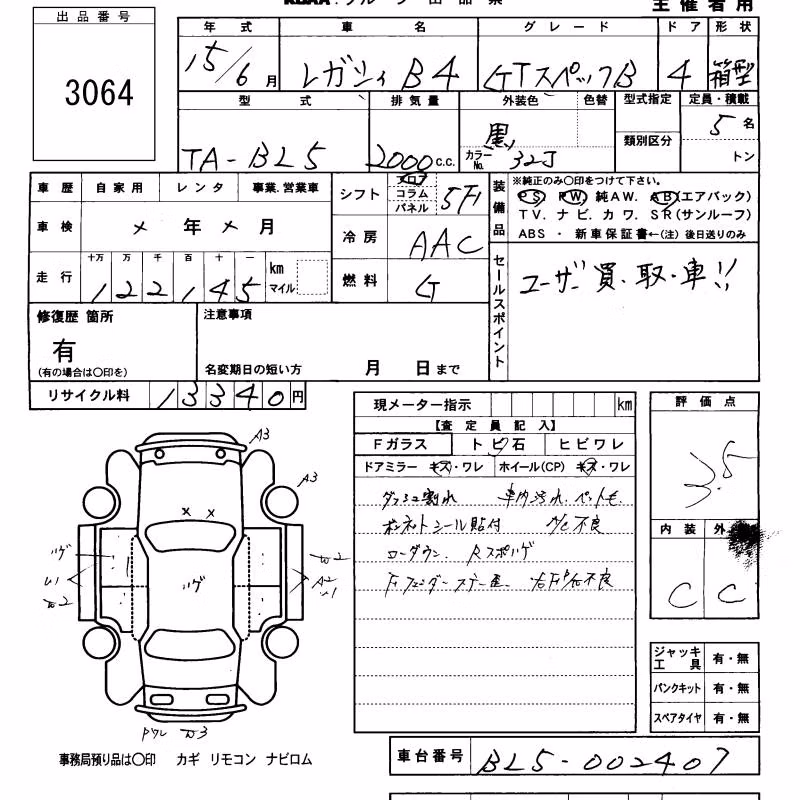 主催者用
出品番号
3064
年式 車名 グレード ドア 形状
15/6月 レガシィ B4 GTスペックB 4 箱型
型式 排気量 外装色 色替 型式指定 定員・積載
TA-BL5 2000c.c. 黒 カラーNo. 32J 類別区分 5名
トン
車歴 自家用 レンタ 事業.営業車
シフト フロア コラム パネル 5F
装備品
※純正のみ〇印をつけて下さい。
PS PW 純AW. AB(エアバック)
TV. ナビ. カワ. SR(サンルーフ)
ABS・新車保証書←(注)後日送りのみ
車検 メ 年 メ 月
冷房 AAC
走行 十万 万 千 百 十 一 km マイル
122145
燃料 G
セールスポイント
ユーザー買取車!!
修復歴 箇所
有
(有の場合は〇印を)
注意事項
名変期日の短い方 月 日まで
リサイクル料 13340円
現メーター指示 km
【査定員記入】
Fガラス トビ石 ヒビワレ
ドアミラー キズ・ワレ ホイール(CP) キズ・ワレ
ダッシュ割れ 車内汚れ.ペット毛
ボンネットシール貼付 A/C不良
ローダウン. Rスポハゲ
評価点
3.5
内装 外
C C
A3
A3
× ×
ハゲ
ハゲ
A2
ジャッキ工具 有・無
パンクキット 有・無
スペアタイヤ 有・無
事務局預り品は〇印 カギ リモコン ナビロム
車台番号 BL5-002407